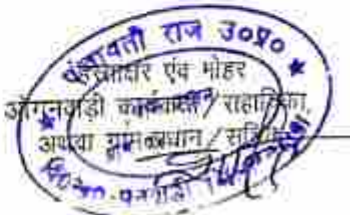 पंचायती राज उ०प्र०
हस्ताक्षर एवं मोहर
आँगनवाड़ी कार्यकर्ता / सहायिका
अथवा ग्राम प्रधान / सचिव